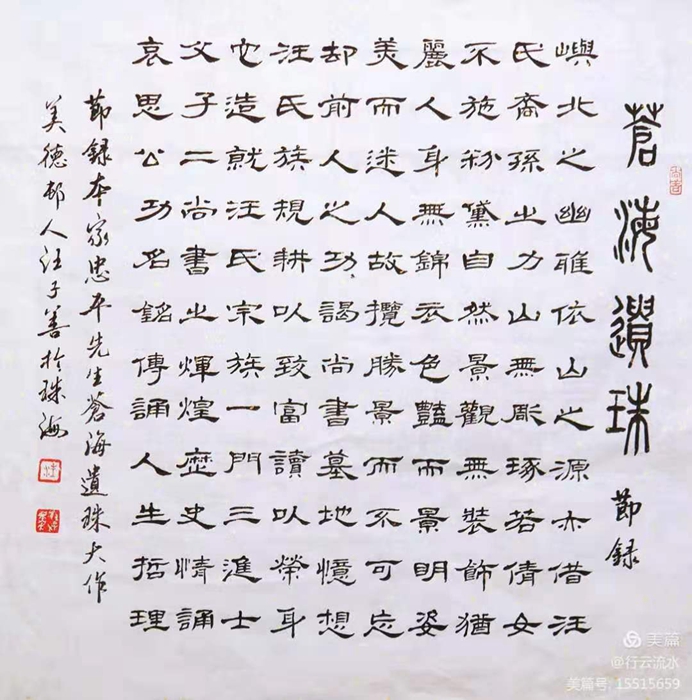 蒼海遺珠 節錄
嶼北之幽唯依山之源亦借汪
氏裔孫之力山無彫琢若倩女
不施粉黛自然景觀無裝飾猶
麗人身無錦衣色豔而景明姿
美而迷人故攬勝景而不可忘
却前人之功謁尚書墓地憶想
汪氏族規耕以致富讀以榮身
它造就汪氏宗族一門三進士
父子二尚書之煇煌歷史情誦
哀思公功名銘傳誦人生哲理
節録本家忠平先生蒼海遺珠大作
美德邨人汪子善於珠海
美篇
@行云流水
美篇号: 15515659